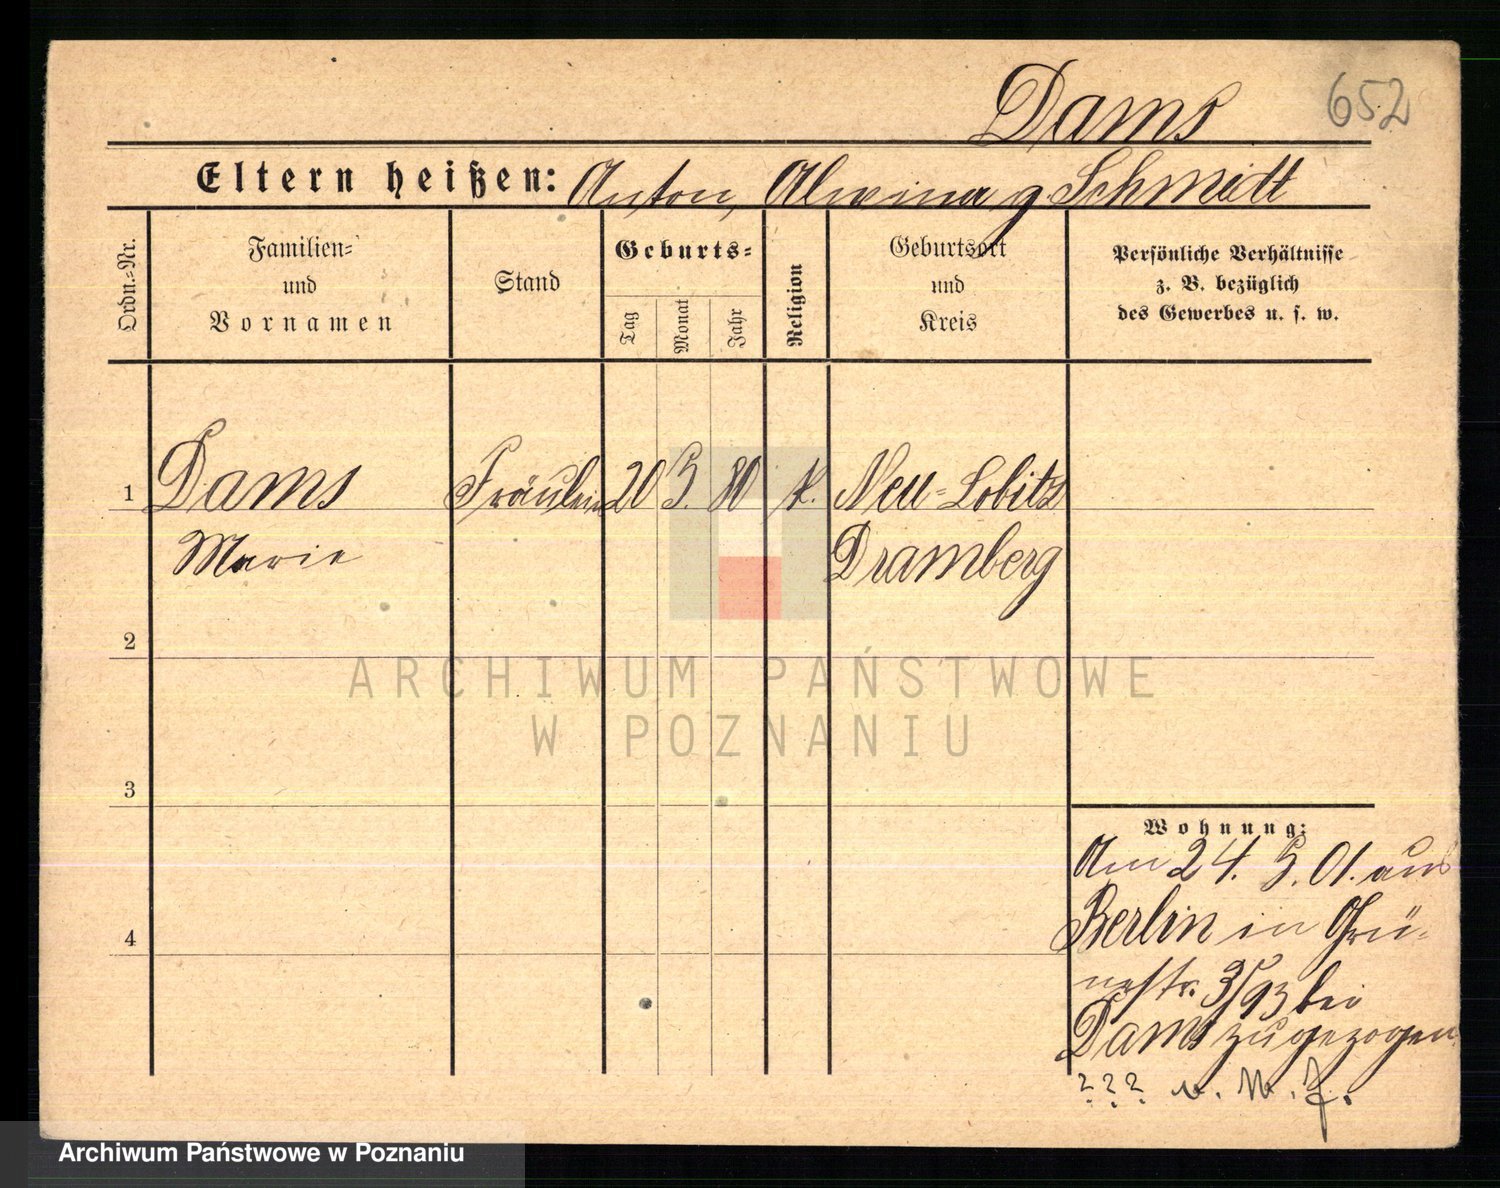 Dams
652
Eltern heißen: Anton, Alwina g Schmidt
Ordn.-Nr.
Familien-
und
Vornamen
Stand
Geburts-
Tag
Monat
Jahr
Religion
Geburtsort
und
Kreis
Persönliche Verhältnisse
z. B. bezüglich
des Gewerbes u. s. w.
1 Dams Fräulein 20 5. 80 k. Neu-Lobitz
Marie Dramberg
2
3
4
Wohnung:
Am 24. 5. 01. aus
Berlin in Grü-
nestr. 3/93 bei
Dams zugezogen
? ? ?
ARCHIWUM PAŃSTWOWE
W POZNANIU
Archiwum Państwowe w Poznaniu